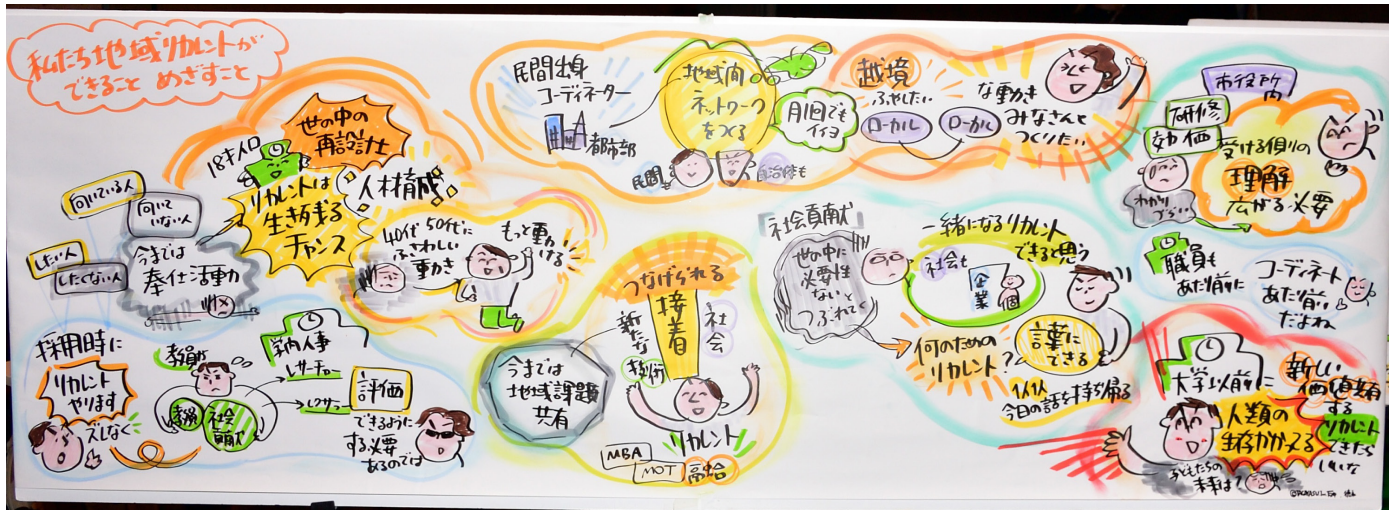 私たち地域リカレントが
できること めざすこと
世の中の
再設計士
18才人口
リカレントは
生き残る
チャンス
人材育成
向いている人
向いて
いない人
したい人
したくない人
今までは
奉仕活動
40代 50代に
ふさわしい
動き
もっと動
ける
採用時に
リカレント
やります
ズレなく
教員が
学内人事
教員
社会
貢献
レサーチャー
評価
できるように
する必要
あるのでは
民間出身
コーディネーター
都市部
地域間
ネットワーク
をつくる
月1回でも
イイヨ
民間も
自治体も
越境
ふやしたい
な動き
ローカル
ローカル
みなさんと
つくりたい
つなげられる
接着
新たな
社会
今までは
地域課題
共有
リカレント
MBA
MOT
社会貢献
世の中に
必要性
ないと
つぶれてく
一緒になるリカレント
できると思う
社会も
企業
何のための
リカレント?
謹にできる
今日の話を持ち帰る
市役所
内
研修
効価
受ける側の
理解
広がる必要
わかり
づらい
職員も
あたり前に
コーディネート
あたり前
だよね
大学以前に
新しい
価値共有
する
リカレント
できたら
いいな
人類の
生存かかえる
子どもたちの
未来は?